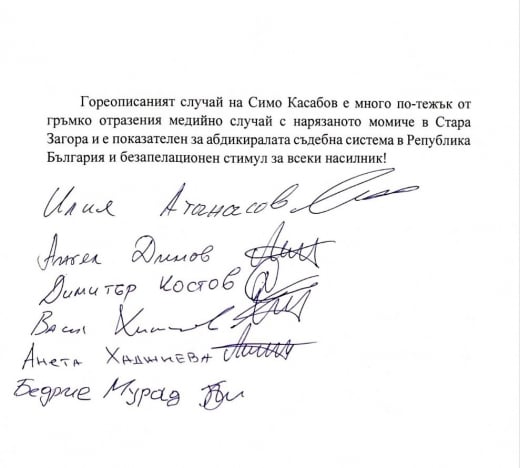 Гореописаният случай на Симо Касабов е много по-тежък от
гръмко отразения медийно случай с нарязаното момиче в Стара
Загора и е показателен за абдикиралата съдебна система в Република
България и безапелационен стимул за всеки насилник!
Илия Атанасов
Ангел Динов
Димитър Костов
Васил
Анета Хаджиева
Бедрие Мурад